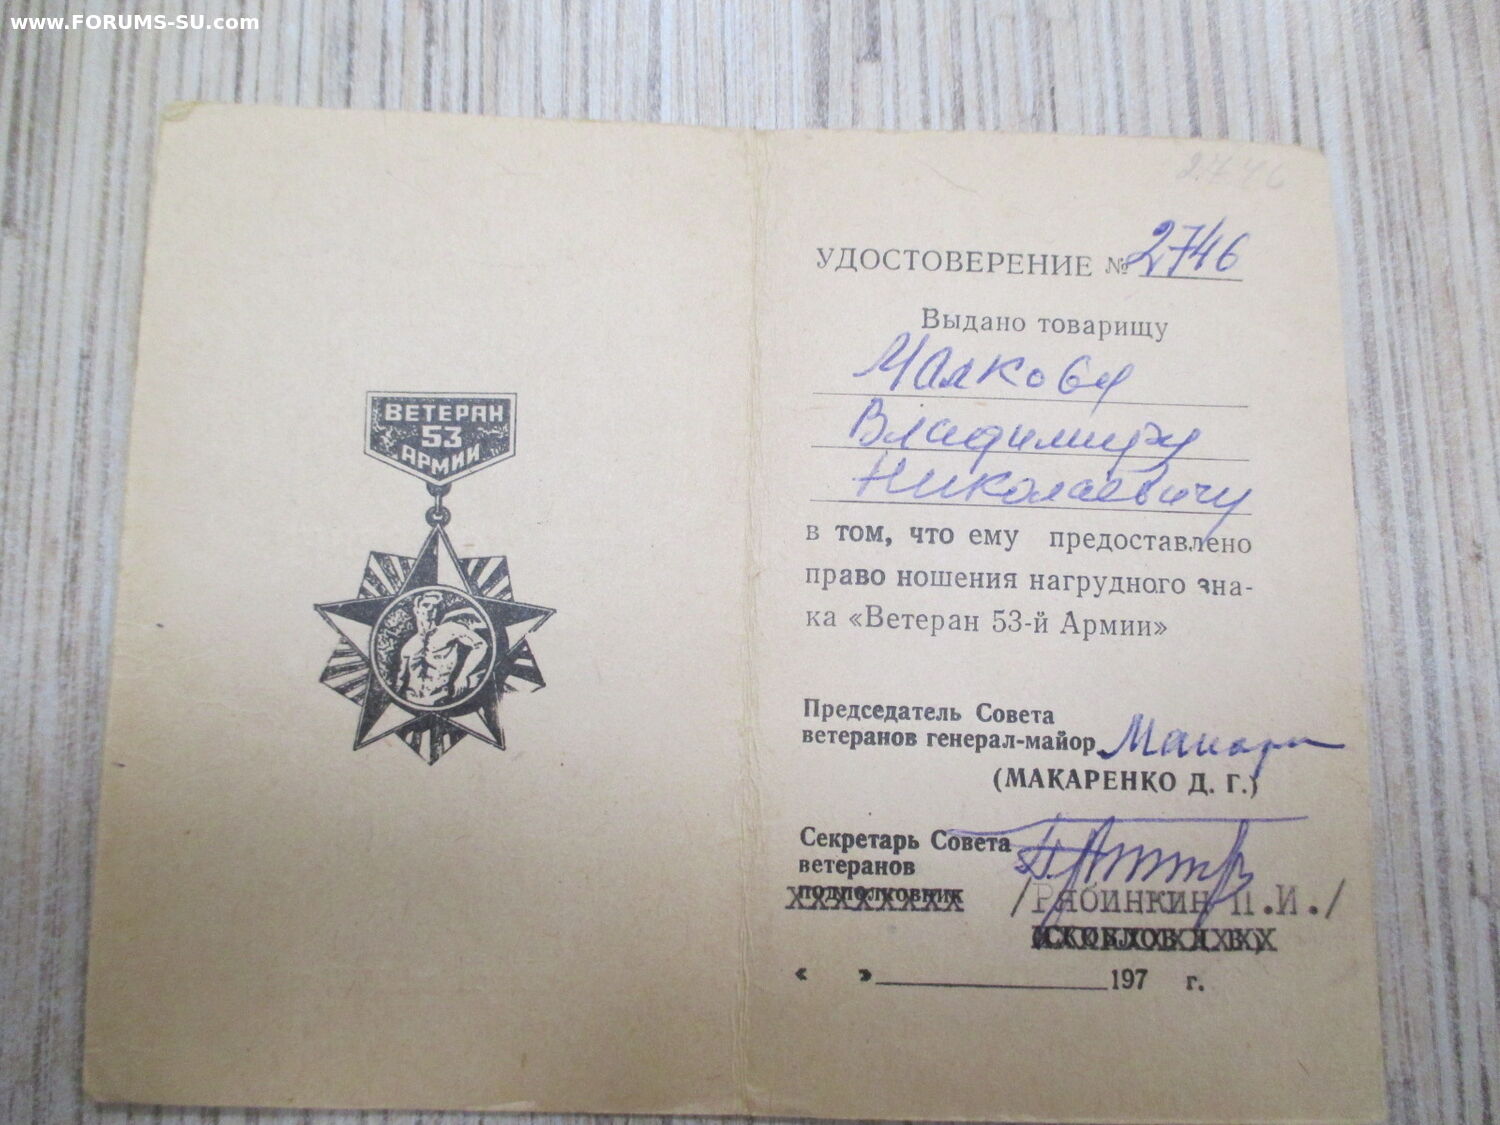 www.FORUMS-SU.com
2746
УДОСТОВЕРЕНИЕ № 2746
Выдано товарищу
Малкову
Владимиру
Николаевичу
в том, что ему предоставлено
право ношения нагрудного зна-
ка «Ветеран 53-й Армии»
ВЕТЕРАН
53
АРМИИ
Председатель Совета
ветеранов генерал-майор
(МАКАРЕНКО Д. Г.)
Секретарь Совета
ветеранов
подполковник /Рябинкин П.И./
« » 197 г.